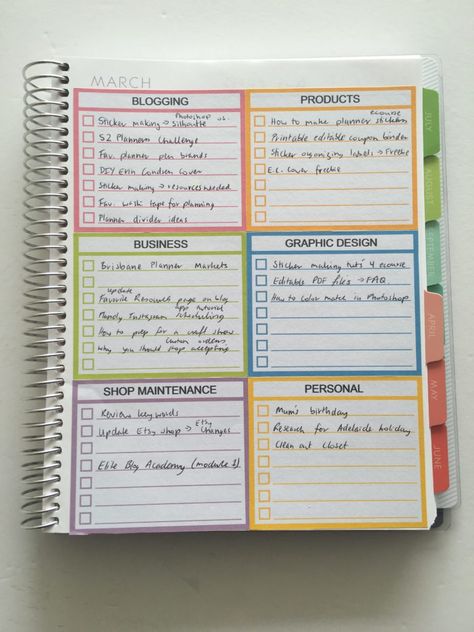 MARCH
BLOGGING
Sticker making → Photoshop vs. Silhouette
52 Planners Challenge
Fav. planner pen brands
DIY Erin Condren cover
Sticker making → resources needed
Fav. washi tape for planning
Planner divider ideas
PRODUCTS
How to make planner stickers ecourse
Printable editable coupon binder
Sticker organizing labels → Freebie
E.C. cover freebie
BUSINESS
Brisbane Planner Markets
update
Favorite Resources page on blog
Instagram scheduling app tutorial
How to prep for a craft show
Why you should stop accepting custom orders
GRAPHIC DESIGN
Sticker making tut's 4 ecourse
Editable PDF files → FAQ
How to Color match in Photoshop
SHOP MAINTENANCE
Review keywords
Update Etsy shop → Etsy Changes
Elite Blog Academy (module 1)
PERSONAL
Mum's birthday
Research for Adelaide holiday
Clean out closet
JULY
AUGUST
SEPTEMBER
APRIL
MAY
JUNE